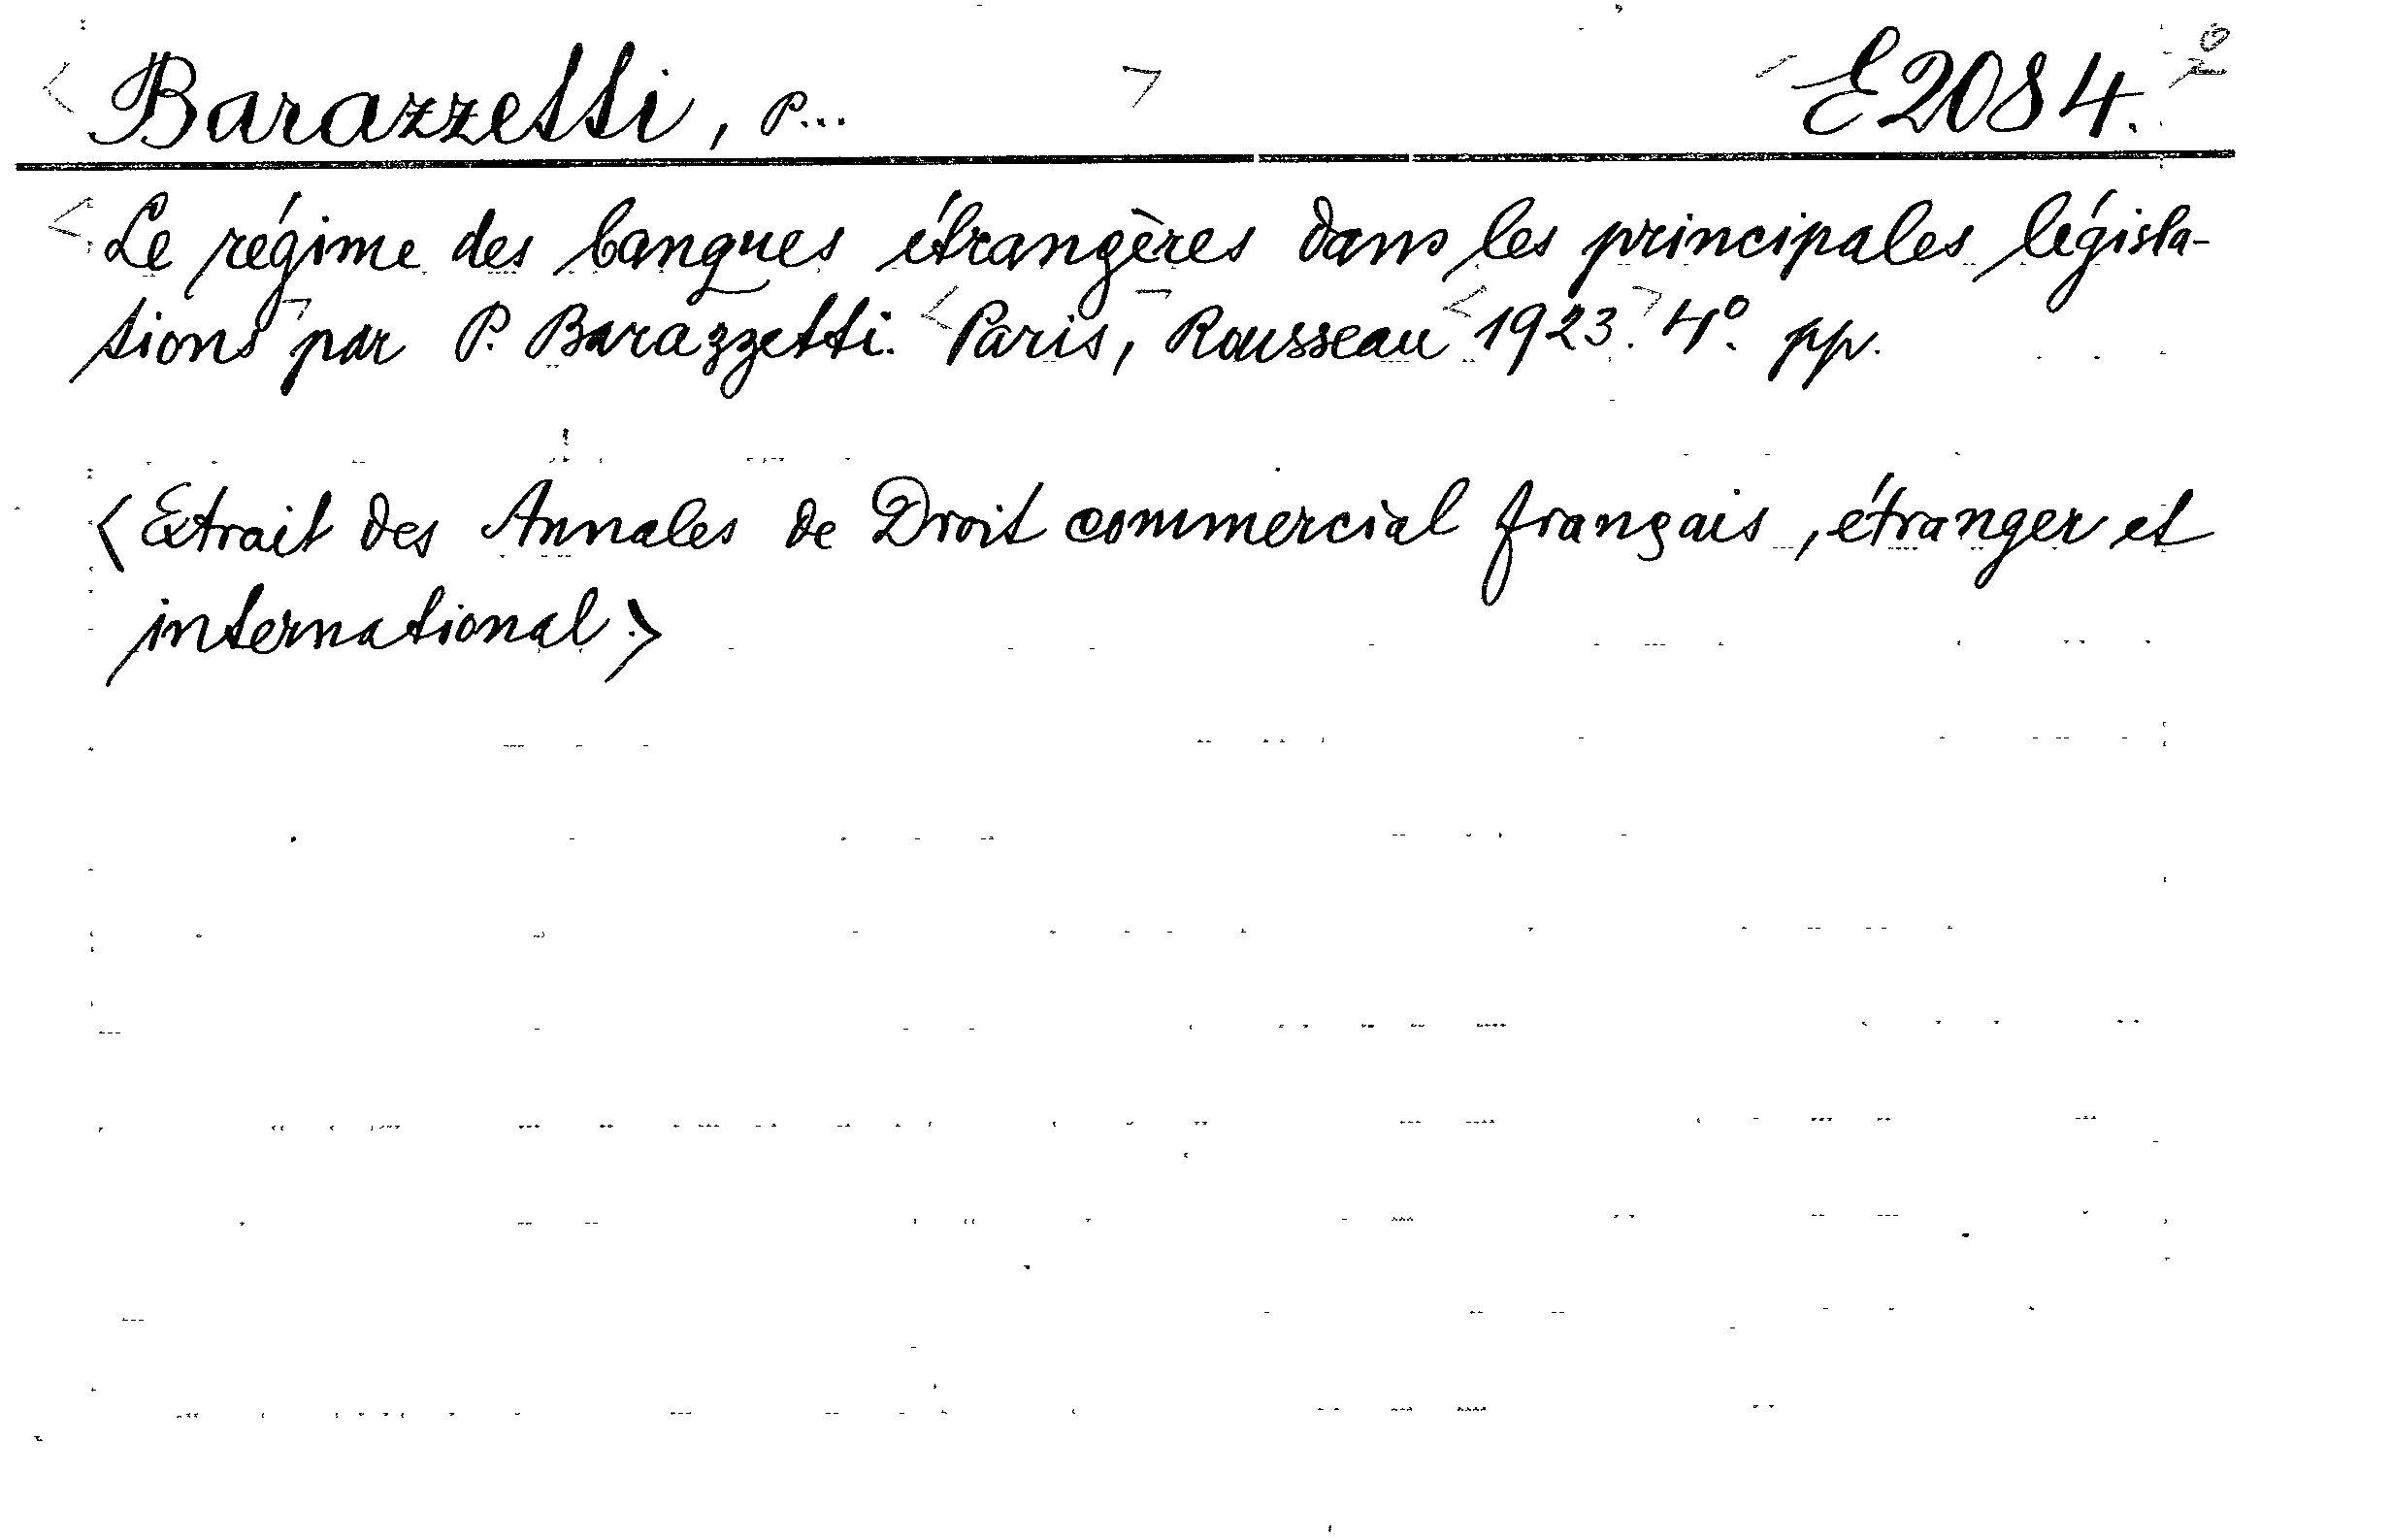 Barazzetti, P... E2084.
Le régime des banques étrangères dans les principales législa-
tions par P. Barazzetti. Paris, Rousseau 1923. 4°. pp.
<Extrait des Annales de Droit commercial français, étranger et
international.>